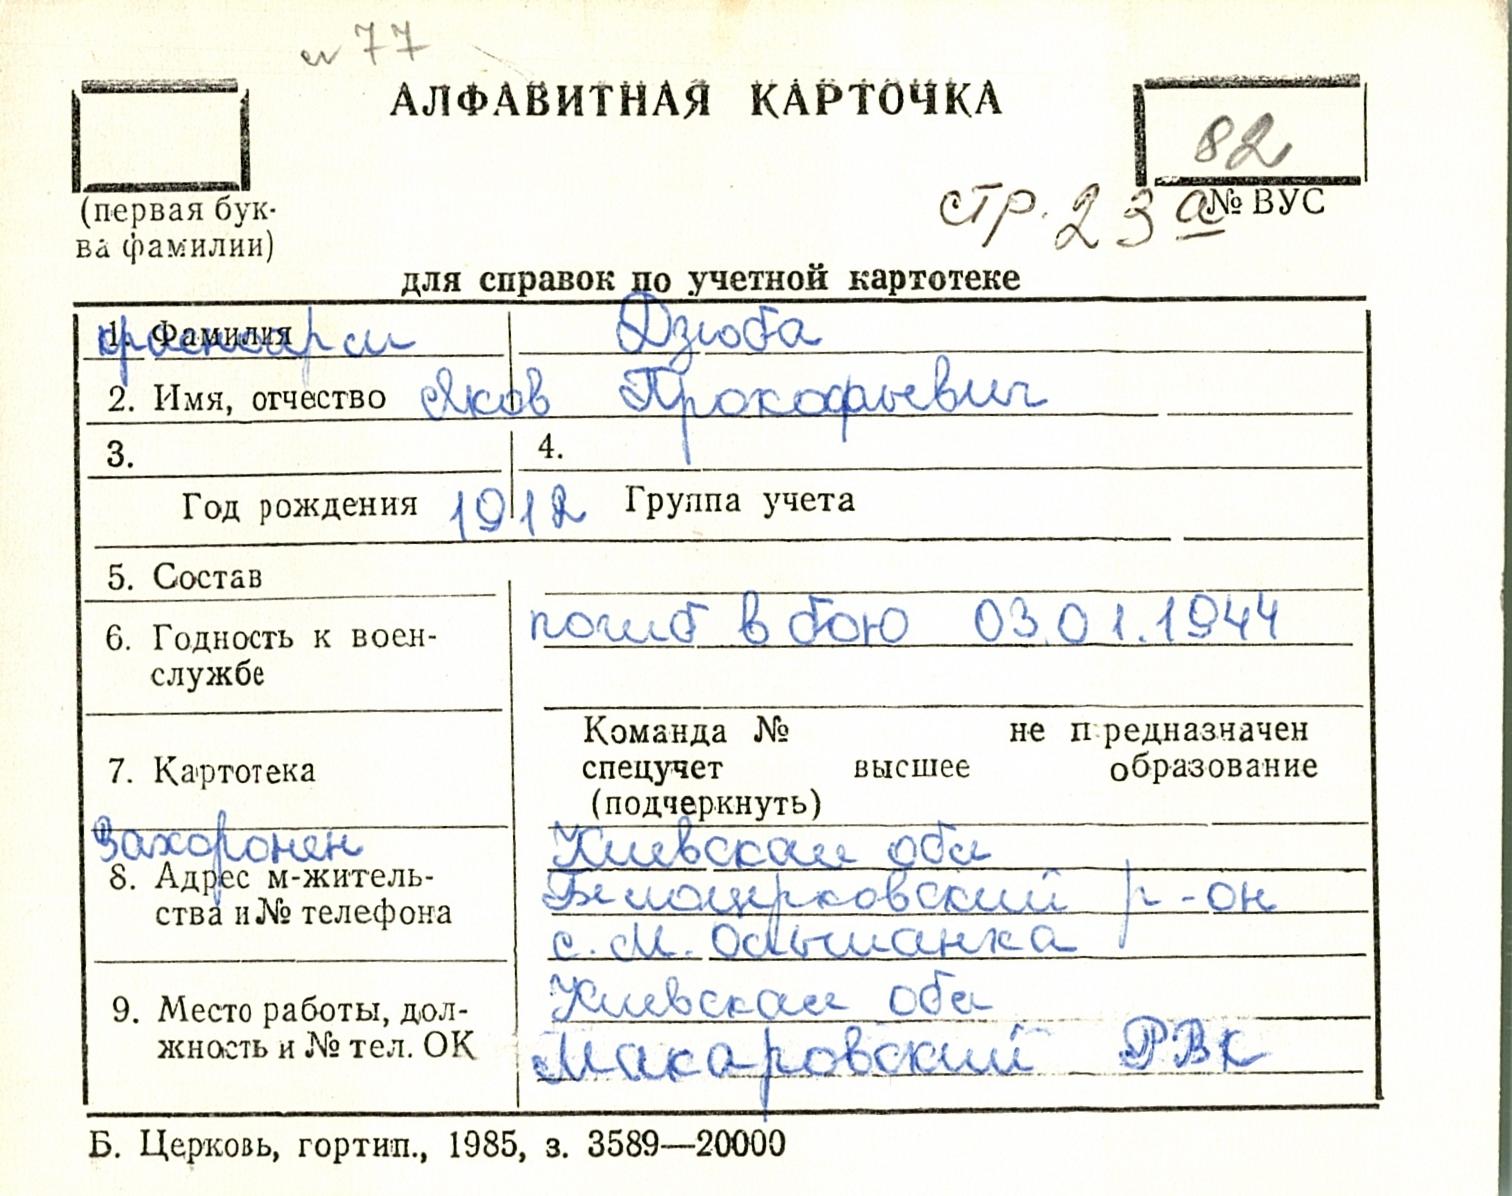 77
АЛФАВИТНАЯ КАРТОЧКА
82
(первая бук-
ва фамилии)
стр. 23а
№ ВУС
для справок по учетной картотеке
1. Фамилия Дзюба
красноарм
2. Имя, отчество Яков Прокофьевич
3. 4.
Год рождения 1912 Группа учета
5. Состав
погиб в бою 03.01.1944
6. Годность к воен-
службе
Команда № не предназначен
7. Картотека
спецучет высшее образование
(подчеркнуть)
Захоронен Киевская обл
8. Адрес м-житель-
ства и № телефона
Белоцерковский р-он
с. М. Ольшанка
9. Место работы, дол-
жность и № тел. ОК
Киевская обл
Макаровский РВК
Б. Церковь, гортип., 1985, з. 3589—20000